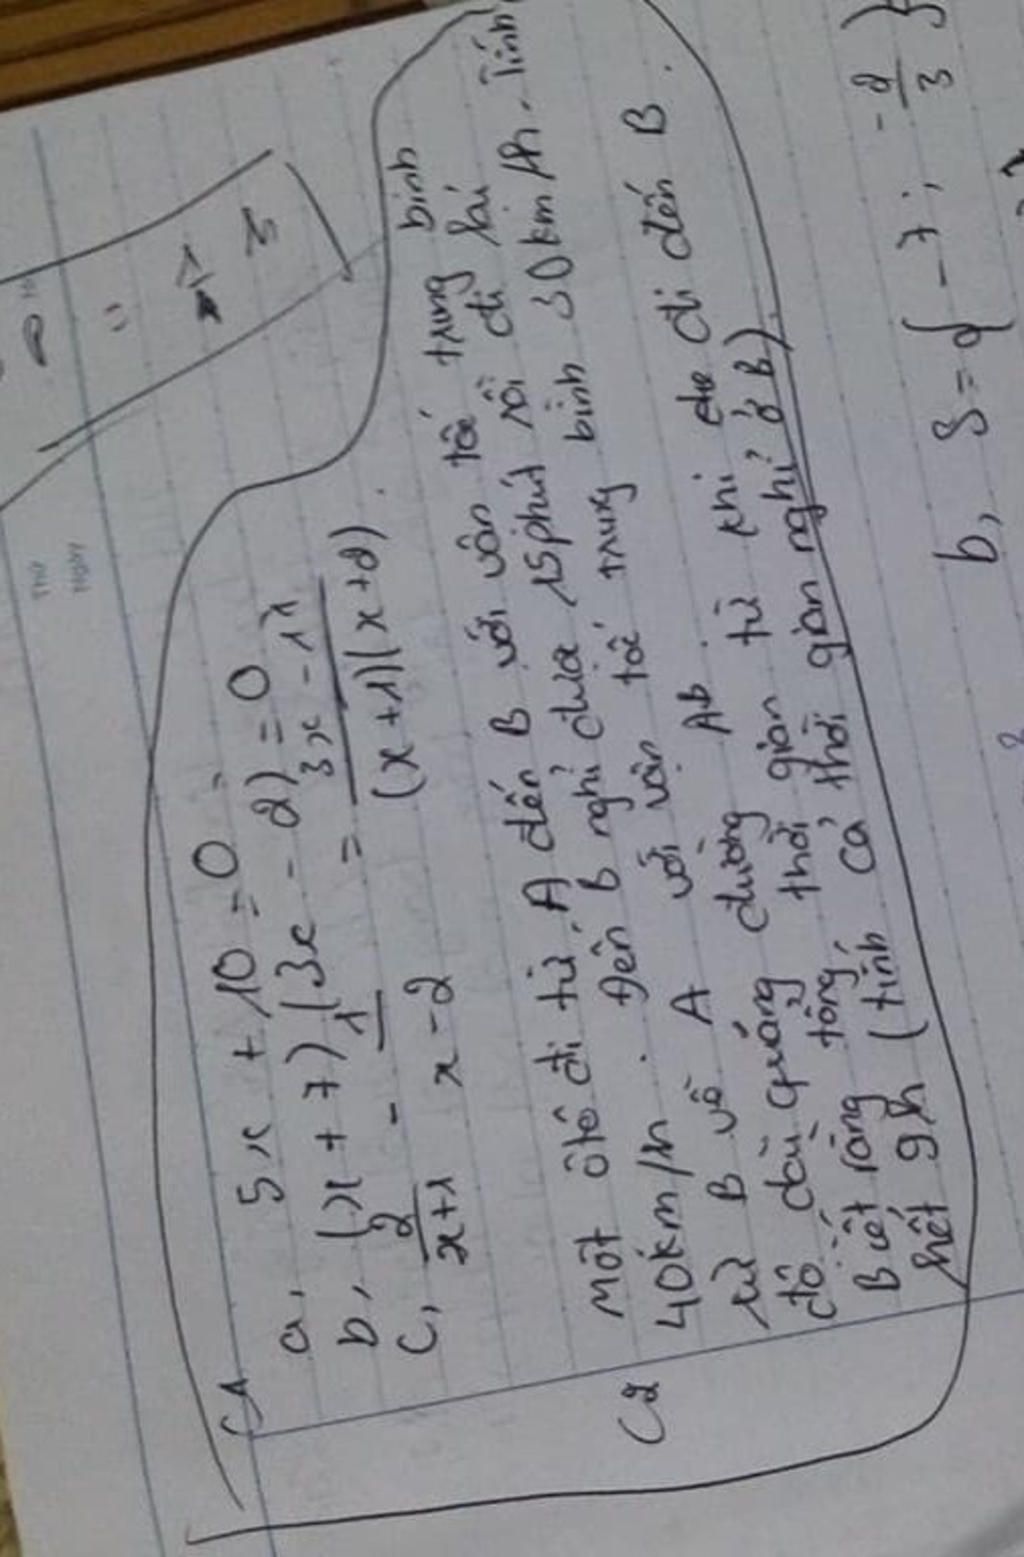 C1
a, 5x + 10 = 0
b, (x + 7)(3x - 2) = 0
c, 2/(x+1) - 1/(x-2) = (3x - 11)/((x+1)(x+2))
C2 Một ôtô đi từ A đến B với vận tốc trung bình
40km/h. Đến B nghỉ 15phút rồi đi
từ B về A với vận tốc trung bình 30km/h. Tính
độ dài quãng đường AB
Biết rằng tổng thời gian từ khi đi đến B
hết 9h (tính cả thời gian nghỉ ở B)
b, S = { -7 ; -2/3 }
Thứ
Ngày